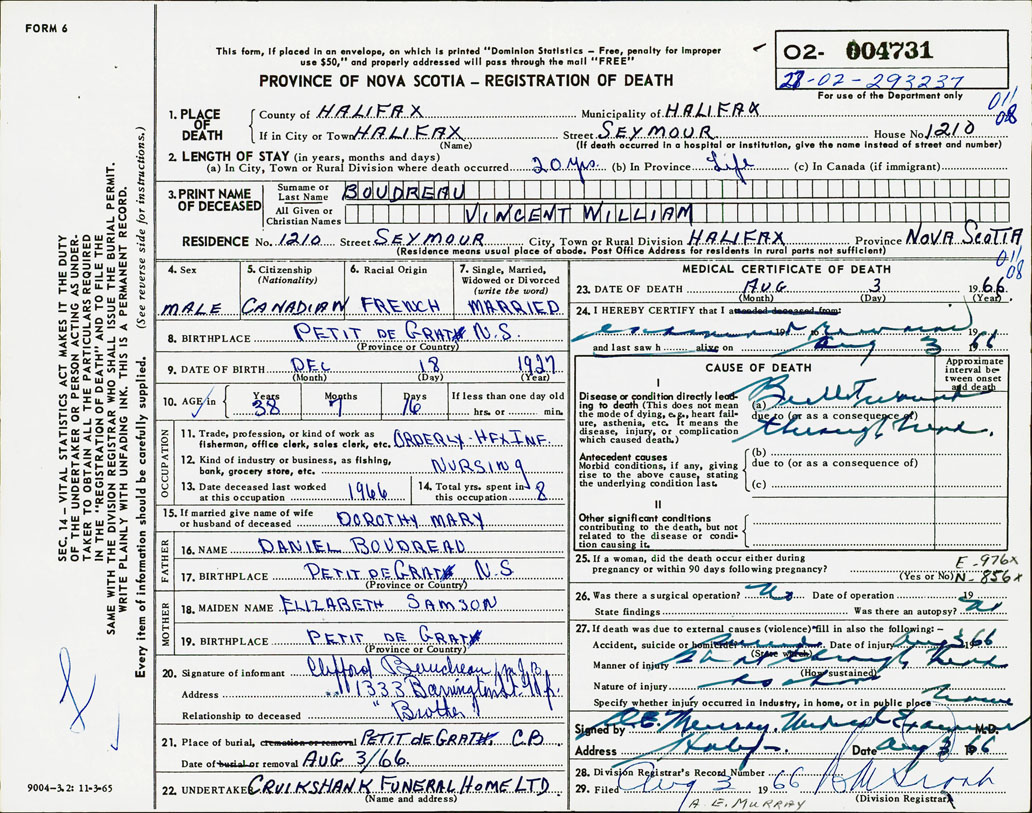 FORM 6
This form, if placed in an envelope, on which is printed "Dominion Statistics – Free, penalty for improper
use $50," and properly addressed will pass through the mail "FREE"
PROVINCE OF NOVA SCOTIA – REGISTRATION OF DEATH
02- 004731
-02-293237
For use of the Department only
011
08
1. PLACE OF DEATH
County of HALIFAX Municipality of HALIFAX
If in City or Town HALIFAX Street SEYMOUR House No 1210
(Name) (If death occurred in a hospital or institution, give the name instead of street and number)
2. LENGTH OF STAY (in years, months and days)
(a) In City, Town or Rural Division where death occurred 20 yrs. (b) In Province Life (c) In Canada (if immigrant)
3. PRINT NAME OF DECEASED
Surname or Last Name BOUDREAU
All Given or Christian Names VINCENT WILLIAM
RESIDENCE No. 1210 Street SEYMOUR City, Town or Rural Division HALIFAX Province NOVA SCOTIA
(Residence means usual place of abode. Post Office Address for residents in rural parts not sufficient)
011
08
4. Sex MALE
5. Citizenship (Nationality) CANADIAN
6. Racial Origin FRENCH
7. Single, Married, Widowed or Divorced (write the word) MARRIED
8. BIRTHPLACE PETIT DE GRAT N.S.
(Province or Country)
9. DATE OF BIRTH DEC 18 1927
(Month) (Day) (Year)
10. AGE in Years Months Days If less than one day old
38 7 16 hrs. or min.
OCCUPATION
11. Trade, profession, or kind of work as
fisherman, office clerk, sales clerk, etc. ORDERLY-HFX INF.
12. Kind of industry or business, as fishing,
bank, grocery store, etc. NURSING
13. Date deceased last worked
at this occupation 1966
14. Total yrs. spent in
this occupation 8
15. If married give name of wife
or husband of deceased DOROTHY MARY
FATHER
16. NAME DANIEL BOUDREAU
17. BIRTHPLACE PETIT DE GRAT N.S
(Province or Country)
MOTHER
18. MAIDEN NAME ELIZABETH SAMSON
19. BIRTHPLACE PETIT DE GRAT
(Province or Country)
20. Signature of informant Clifford Boudreau
Address 1333 Barrington St.
Relationship to deceased "Brother"
21. Place of burial, cremation or removal PETIT de GRATH. CB
Date of burial or removal AUG 3/66.
22. UNDERTAKER CRUIKSHANK FUNERAL HOME LTD
(Name and address)
MEDICAL CERTIFICATE OF DEATH
23. DATE OF DEATH AUG 3 1966
(Month) (Day) (Year)
24. I HEREBY CERTIFY that I attended deceased from:
19
and last saw h alive on Aug 3 1966
CAUSE OF DEATH
Approximate interval between onset and death
I
Disease or condition directly leading to death (This does not mean the mode of dying, e.g., heart failure, asthenia, etc. It means the disease, injury, or complication which caused death.)
(a) Bullet wound
due to (or as a consequence of)
through head.
Antecedent causes
Morbid conditions, if any, giving rise to the above cause, stating the underlying condition last.
(b)
due to (or as a consequence of)
(c)
II
Other significant conditions
contributing to the death, but not related to the disease or condition causing it.
25. If a woman, did the death occur either during
pregnancy or within 90 days following pregnancy?
(Yes or No)
E-976x
N-856x
26. Was there a surgical operation? No Date of operation 19
State findings Was there an autopsy? No
27. If death was due to external causes (violence) fill in also the following: –
Accident, suicide or homicide Date of injury Aug 3 1966
(State which)
Manner of injury through head
(How sustained)
Nature of injury
Specify whether injury occurred in industry, in home, or in public place home
Signed by A.E. Murray, Medical Examiner M.D.
Address Date Aug 3 1966
28. Division Registrar's Record Number
29. Filed Aug 3 1966
(Division Registrar)
A. E. MURRAY
SEC. 14 – VITAL STATISTICS ACT MAKES IT THE DUTY
OF THE UNDERTAKER OR PERSON ACTING AS UNDER-
TAKER TO OBTAIN ALL THE PARTICULARS REQUIRED
IN THE "REGISTRATION OF DEATH" AND TO FILE THE
SAME WITH THE DIVISION REGISTRAR WHO SHALL ISSUE THE BURIAL PERMIT.
WRITE PLAINLY WITH UNFADING INK. THIS IS A PERMANENT RECORD.
Every item of information should be carefully supplied. (See reverse side for instructions.)
9004-3.2: 11-3-65